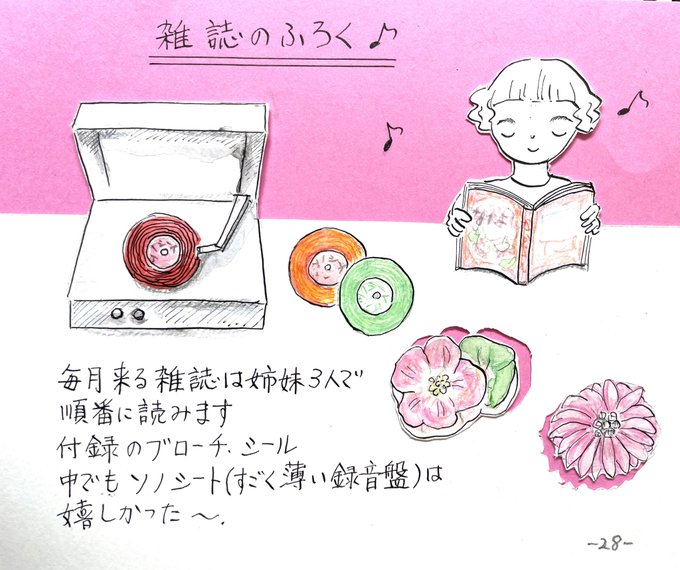 雑誌のふろく♪
なかよ
毎月来る雑誌は姉妹3人で
順番に読みます
付録のブローチ、シール
中でもソノシート(すごく薄い録音盤)は
嬉しかった〜.
-28-